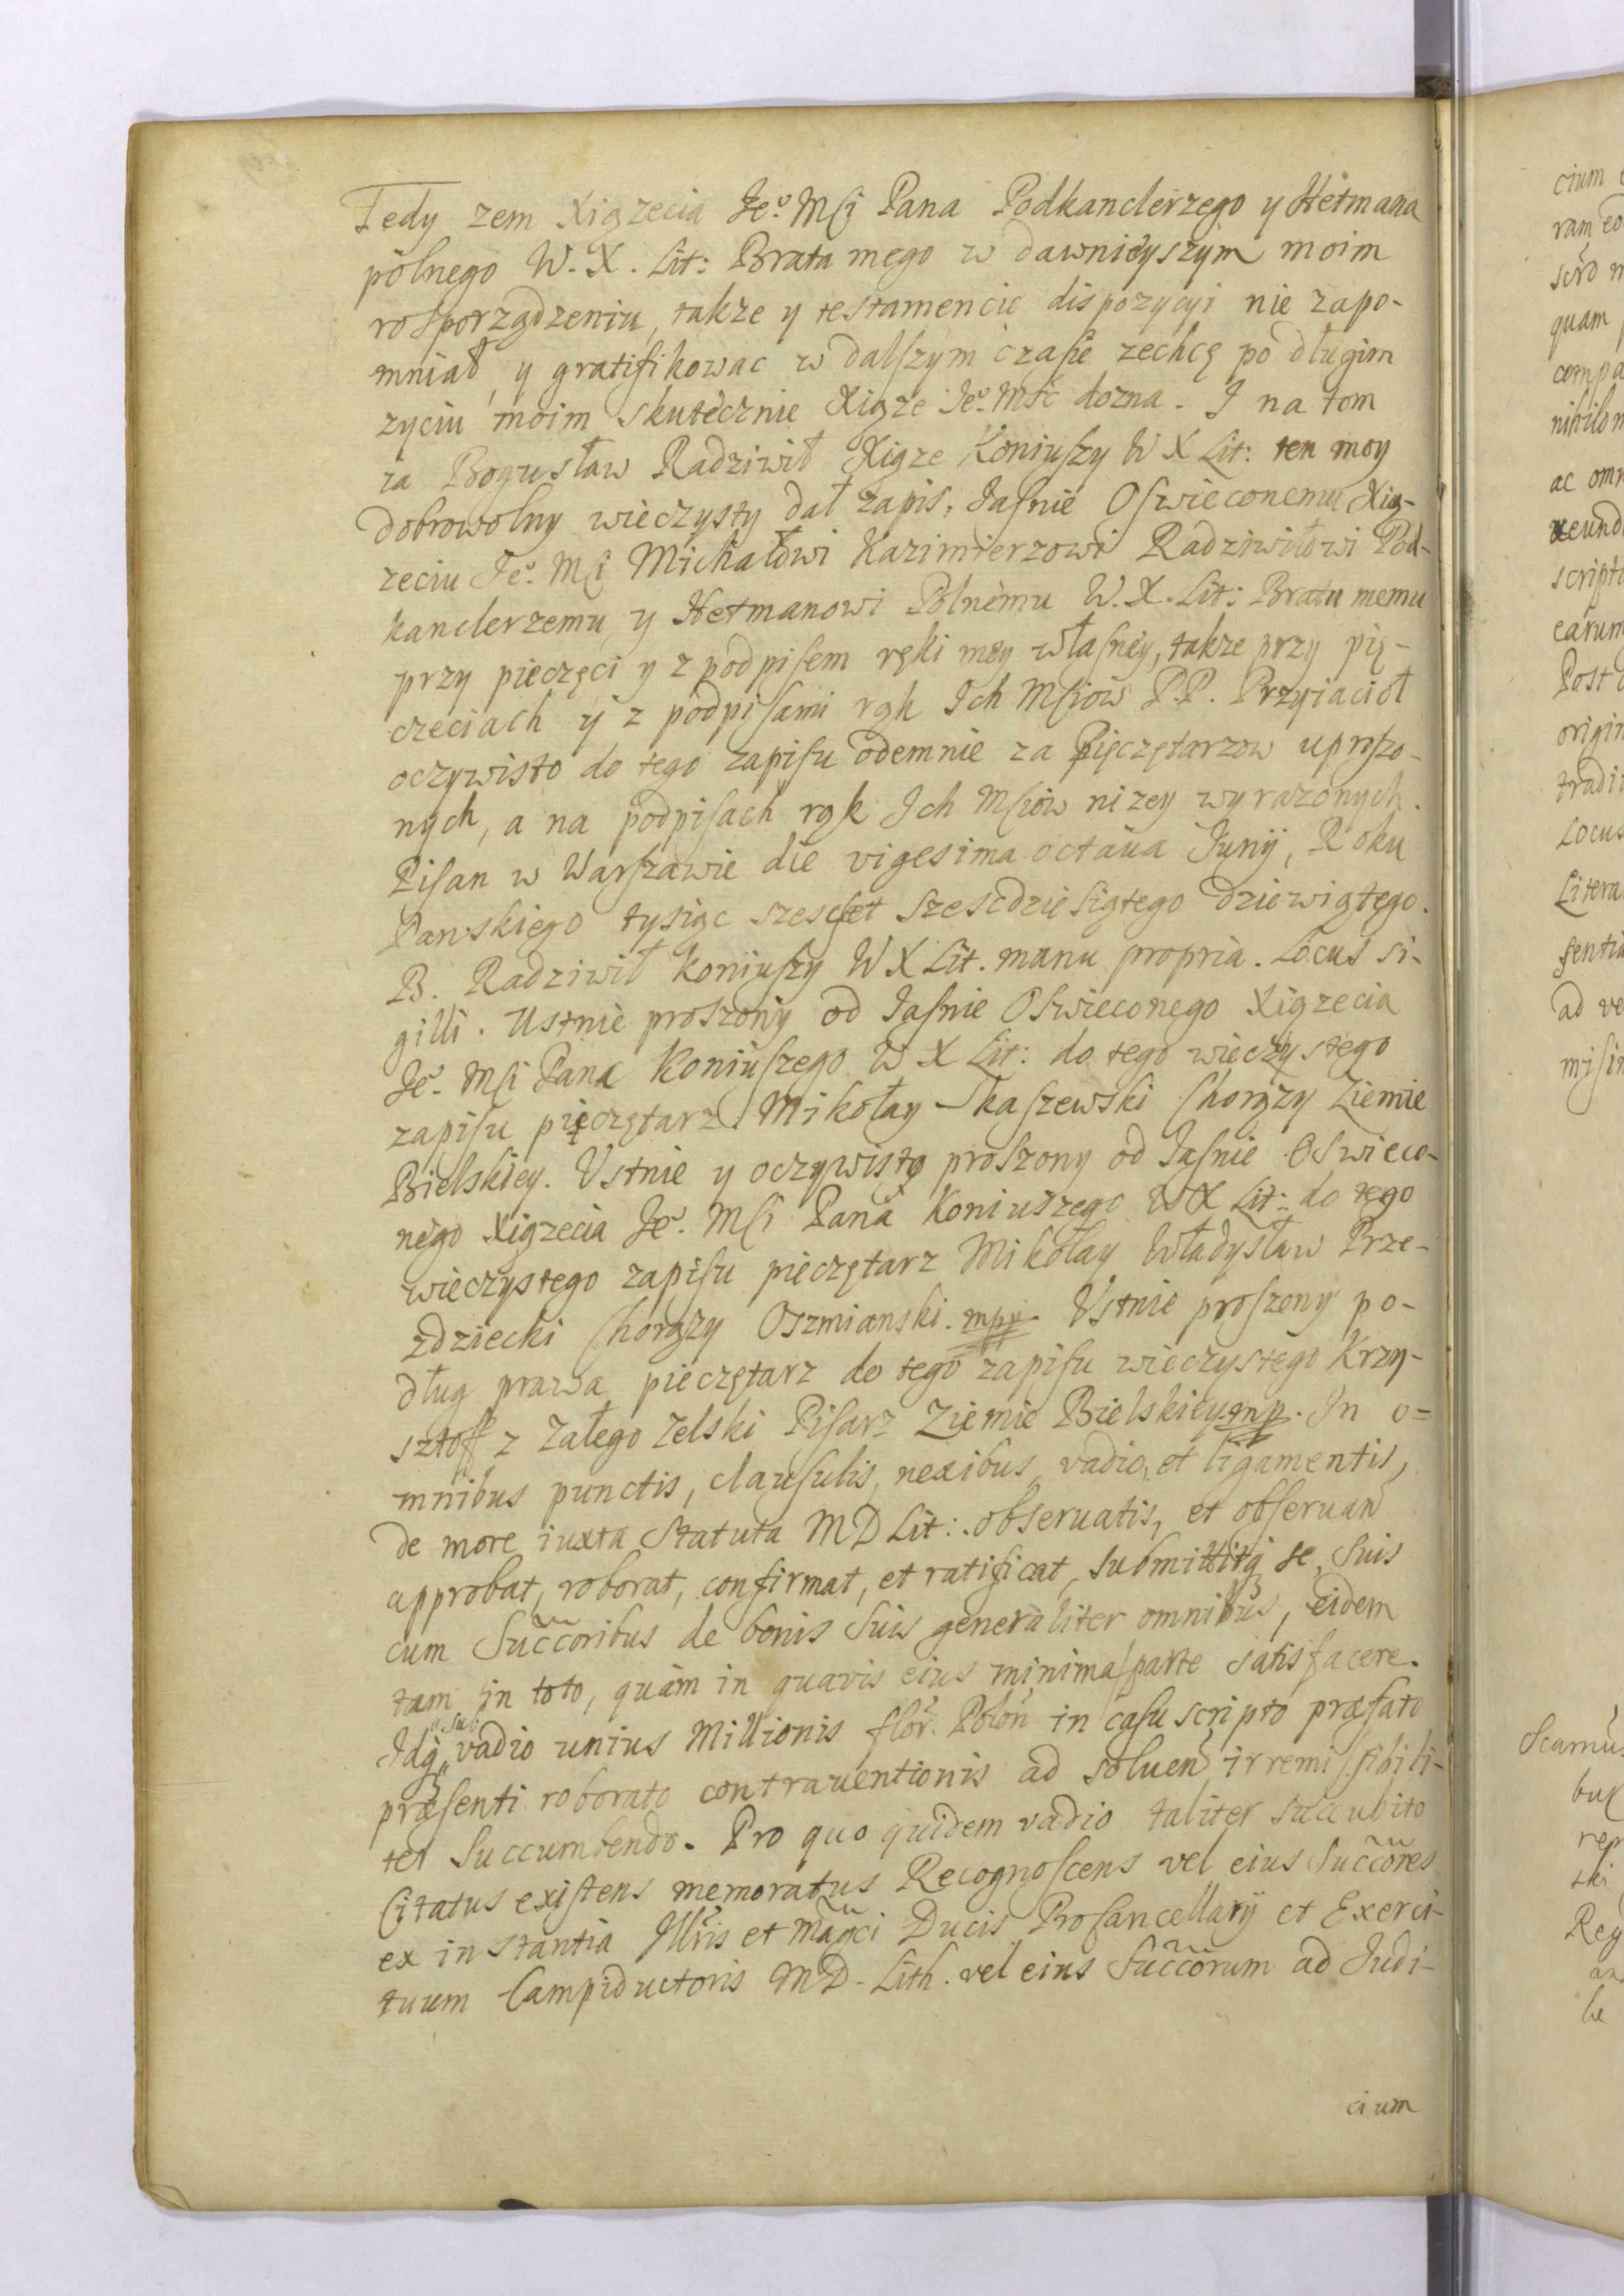 Tedy zem Xiązecia Jeº. Mſci Pana Podkanclerzego y Hetmana
polnego W. X. Lit: Brata mego w dawnieyszym moim
rosporządzeniu, takze y testamencie dispozycyi nie zapo-
mniał, y gratifikowac w dalſzym czaſie zechcę po długim
zyciu moim skutecznie Xiąze Jeº. Mſc dozna. I na tom
ia Bogusław Radziwił Xiąze Koniuſzy W X Lit: ten moy
dobrowolny wieczysty dał zapis, Jaſnie Oſwieconemu Xią-
zeciu Jeº. Mſci Michałowi Kazimierzowi Radziwiłowi Pod-
kanclerzemu y Hetmanowi Polnemu W. X. Lit: Bratu memu
przy pieczęci y z podpiſem ręki mey właſney, takze przy pię-
czeciach y z podpiſami rąk Ich Mſciow P.P. Przyiacioł
oczywisto do tego zapiſu odemnie za Pięczętarzow uproſzo-
nych, a na podpiſach rąk Ich Mſciow nizey wyrazonych.
Piſan w Warſzawie die vigesima octaua Junij, Roku
Panskiego tysiąc szescſet szescdzieſiątego dziewiątego.
B. Radziwił Koniuſzy W X Lit. manu propria. Locus si-
gilli. Ustnie proszony od Jaſnie Oſwieconego Xiązecia
Jeº. Mſci Pana Koniuſzego W X Lit: do tego wieczystego
zapiſu pięczętarz Mikołay Skaſzewski Chorązy Ziemie
Bielskiey. Vstnie y oczywisto proszony od Jaſnie Oswieco-
nego Xiązecia Jeº. Mſci Pana Koniuszego W X Lit: do tego
wieczystego zapiſu pieczętarz Mikołay Władysław Prze-
zdziecki Chorązy Oszmianski. mpp. Vstnie proſzony po-
dług prawa pieczętarz do tego zapiſu wieczystego Krzy-
sztoff z Załego Zelski Piſarz Ziemie Bielskiey mp. In o=
mnibus punctis, clauſulis, nexibus, vadio, et ligamentis,
de more iuxta Statuta MD Lit: obseruatis, et obſeruan
approbat, roborat, confirmat, et ratificat, submittitq se, suis
cum Succoribus de bonis suis generaliter omnibus, eidem
tam in toto, quàm in quavis eius minima parte satisfacere.
Idq sub vadio unius Millionis flor. Polon in caſu scripto præfato
præſenti roborato contrauentionis ad soluen irremiſſibili-
ter succumbendo. Pro quo quidem vadio taliter succubito
Citatus exiſtens memoratus Recognoſcens vel eius Succores
ex instantia Illris et Magci Ducis Procancellarij et Exerci-
tuum Campiductoris MD. Lith. vel eius Succorum ad Judi-
cium